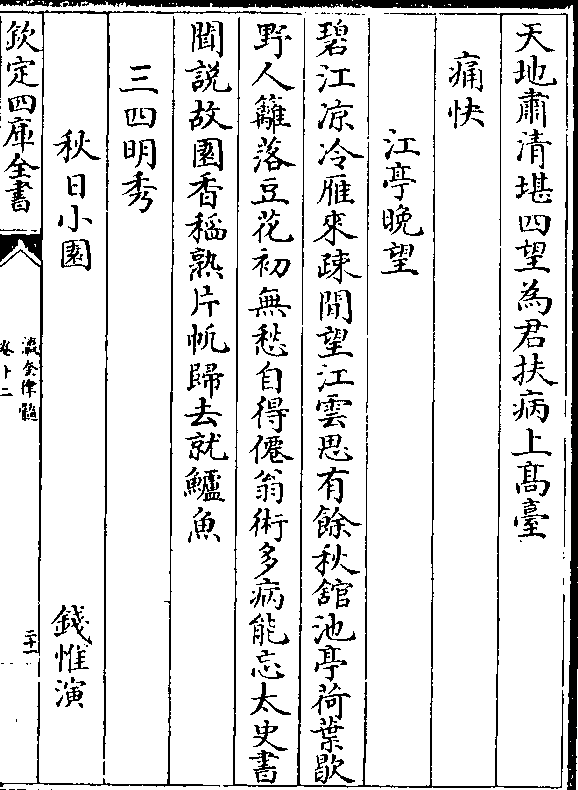 天地肅清堪四望為君扶病上髙臺
痛快
江亭晚望
碧江凉冷雁來踈閒望江雲思有餘秋舘池亭荷葉歇
野人籬落豆花初無愁自得僊翁術多病能忘太史書
聞説故園香稻熟片帆歸去就鱸魚
三四明秀
秋日小園
錢惟演
欽定四庫全書
瀛奎律髓
卷十二
二十一